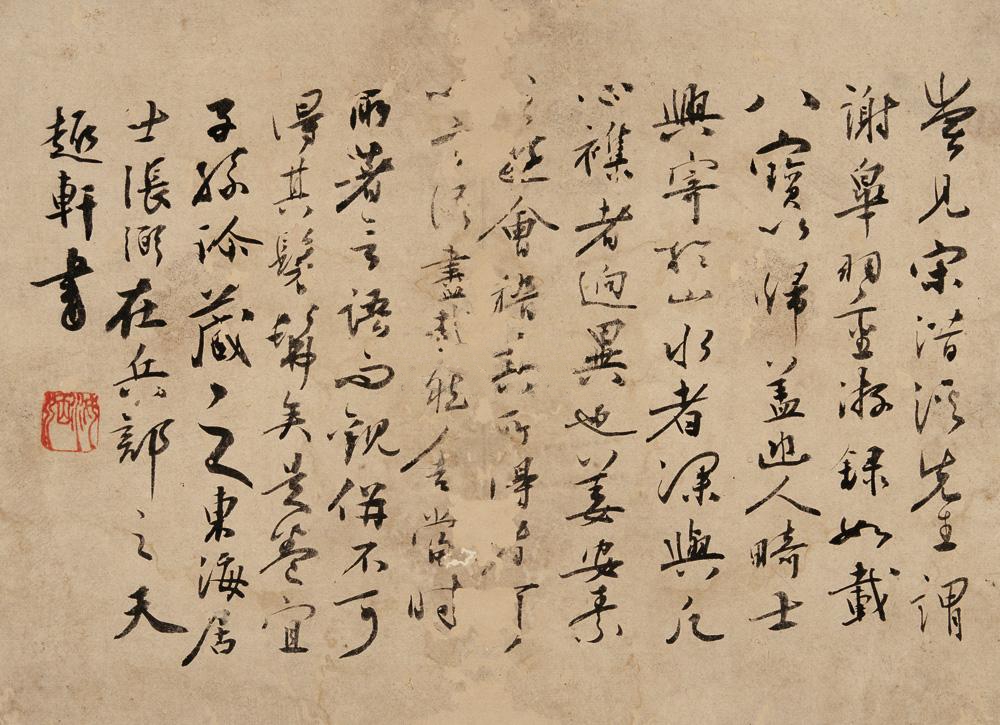 嘗見宋潛溪先生謂
謝皋羽金游錄如載
八寶以歸蓋逸人畸士
興寄於山水者深與凡
心襍者迥異也姜安素
之遊會稽所得
盡能人言當時
所著言語而觀併不可
得其髣髴矣是卷宜
子孫珍藏之之東海居
士張弼在兵部之天
趣軒書